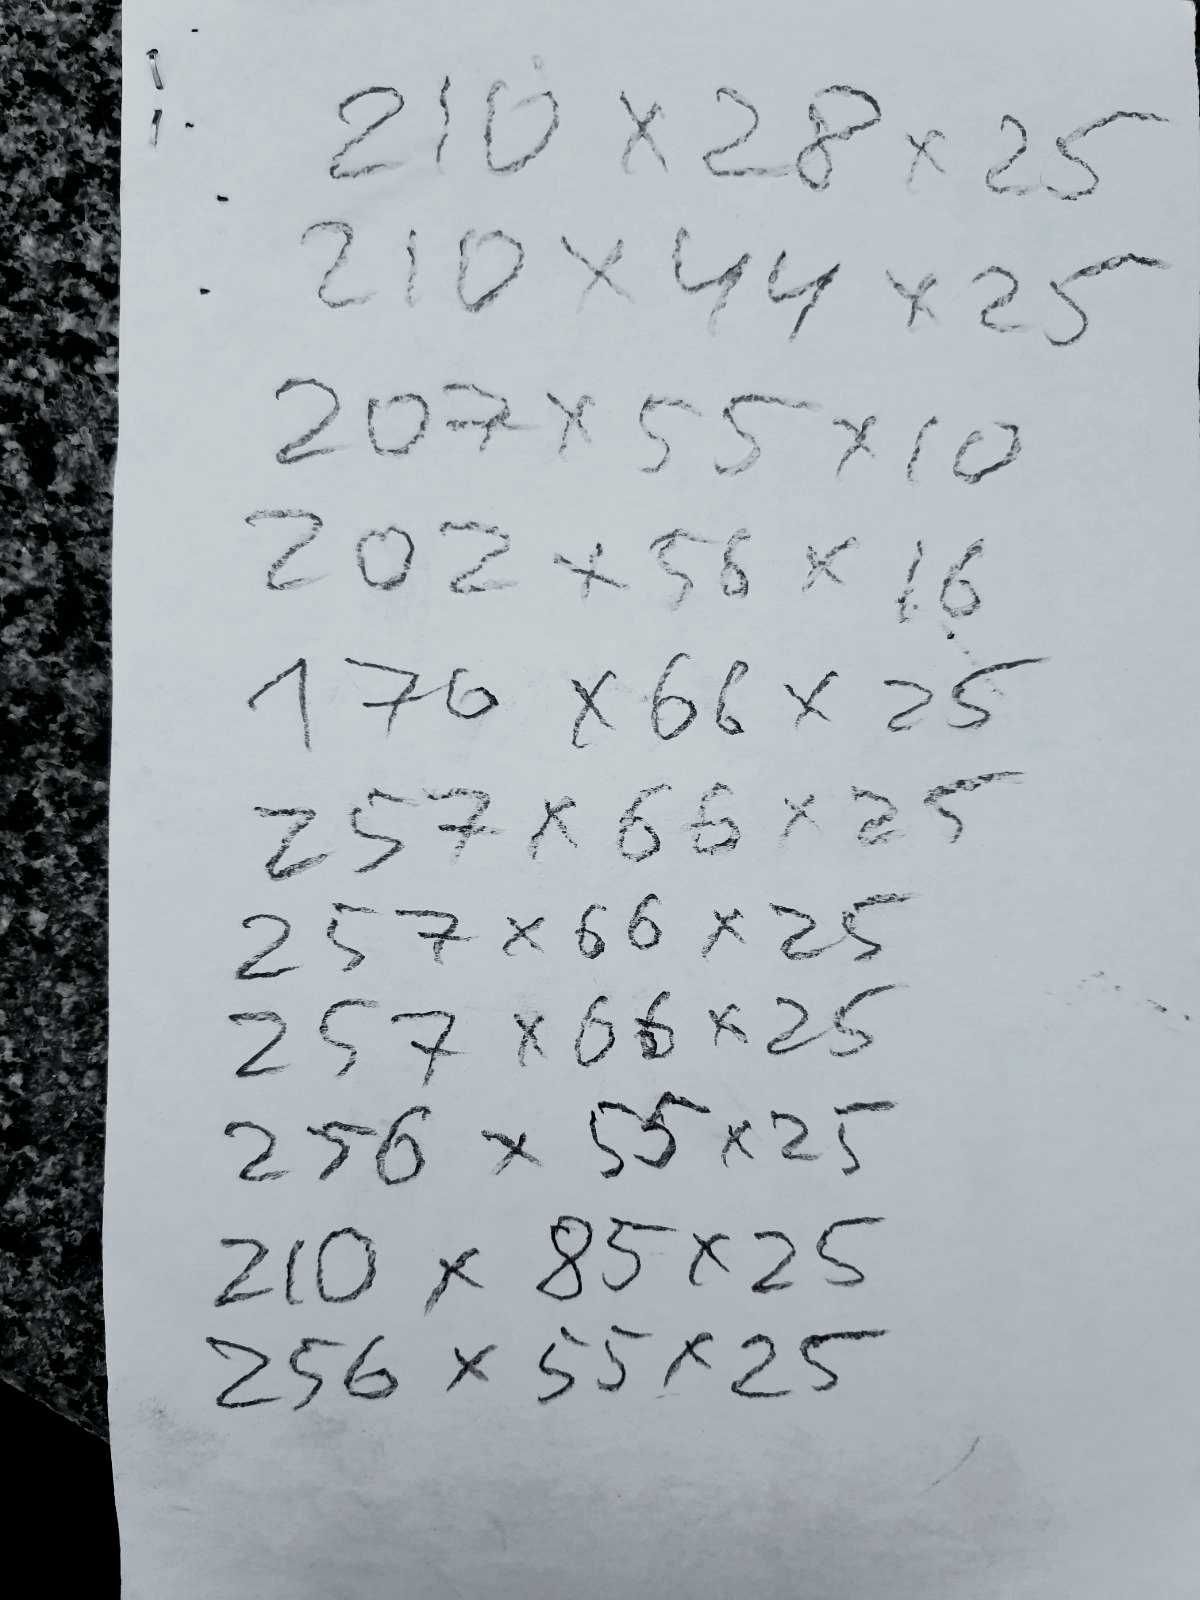 210 x 28 x 25
210 x 44 x 25
207 x 55 x 10
202 x 56 x 16
170 x 66 x 25
257 x 66 x 25
257 x 66 x 25
257 x 66 x 25
256 x 55 x 25
210 x 85 x 25
256 x 55 x 25